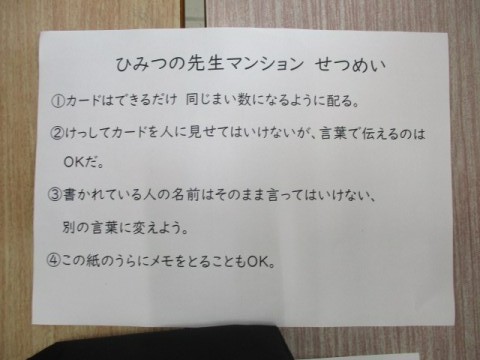 ひみつの先生マンション せつめい
①カードはできるだけ 同じまい数になるように配る。
②けっしてカードを人に見せてはいけないが、言葉で伝えるのは
OKだ。
③書かれている人の名前はそのまま言ってはいけない、
別の言葉に変えよう。
④この紙のうらにメモをとることもOK。